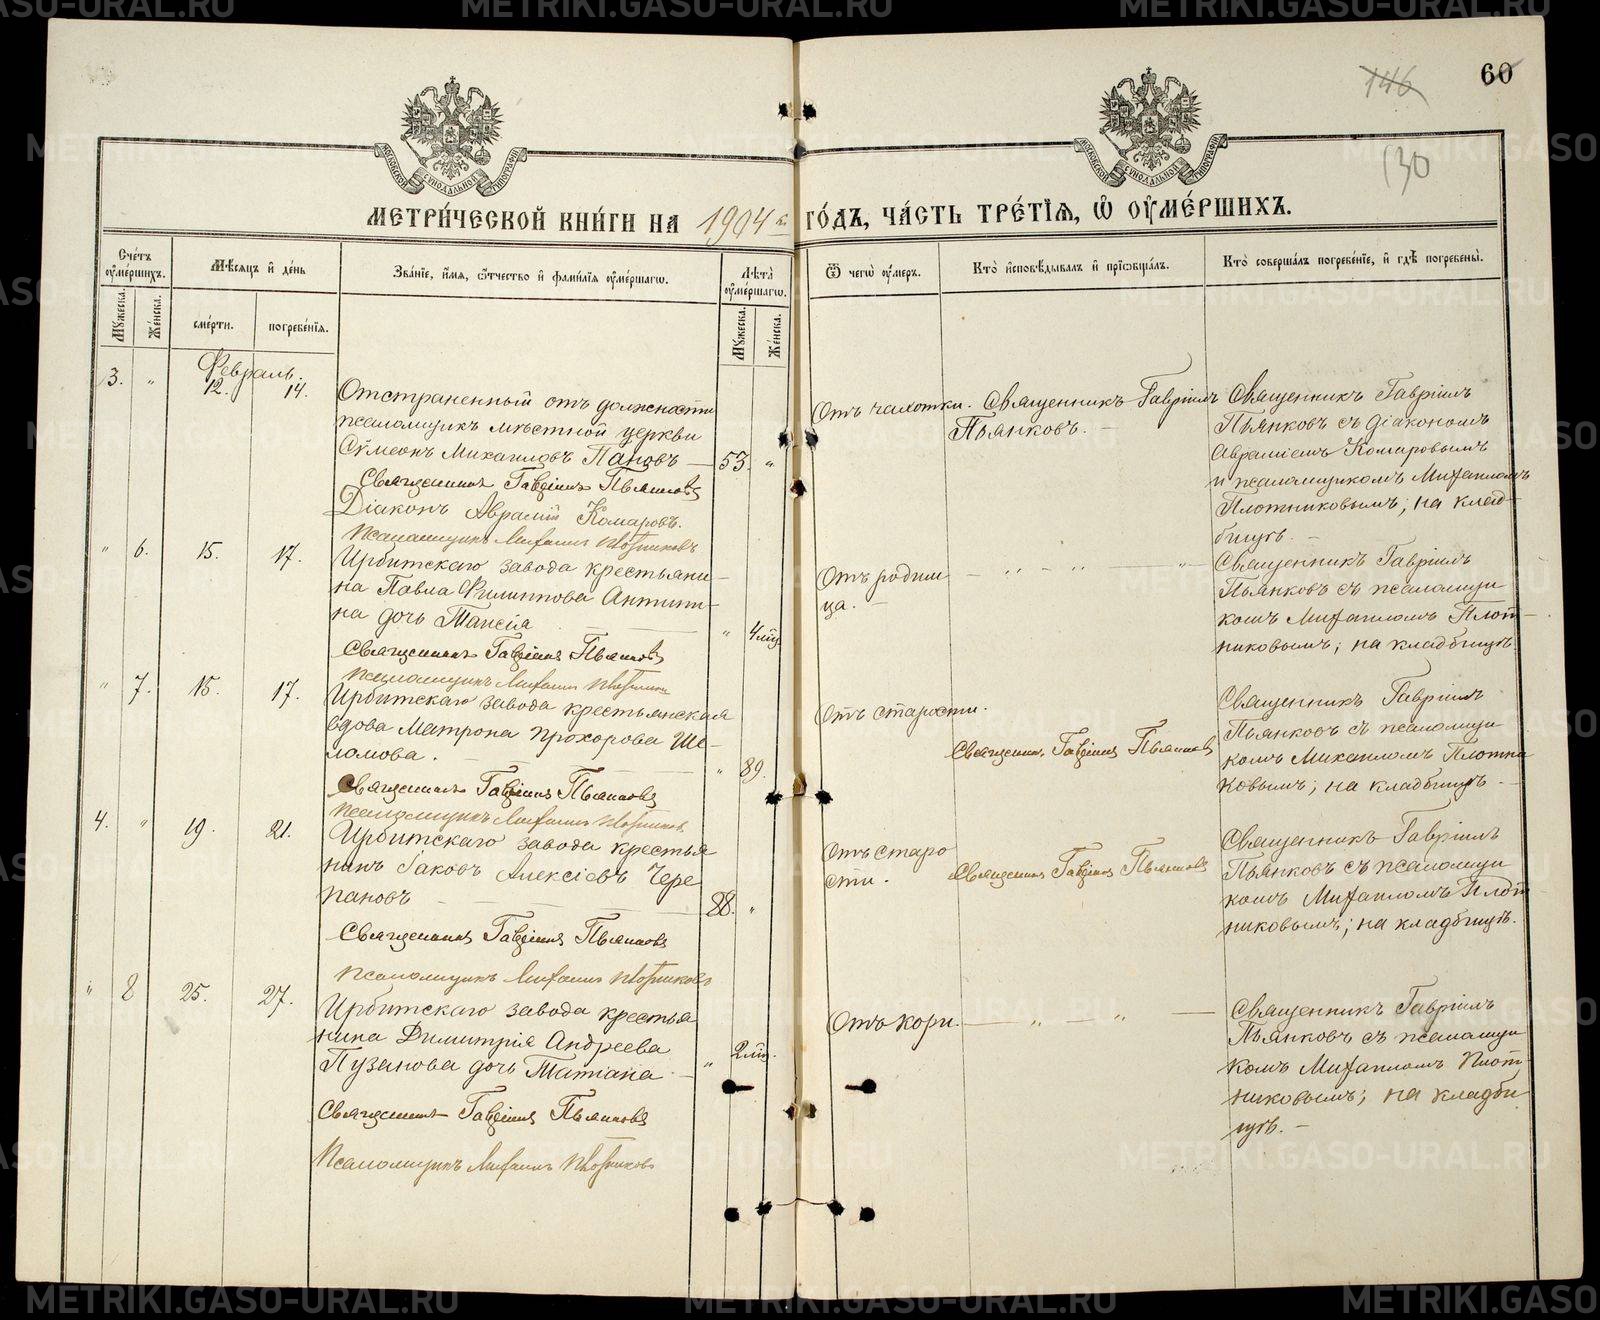 METRIKI.GASO-URAL.RU
146
60
130
МОСКОВСКОЙ СѴНОДАЛЬНОЙ ТИПОГРАФІИ
МОСКОВСКОЙ СѴНОДАЛЬНОЙ ТИПОГРАФІИ
МЕТРИ́ЧЕСКОЙ КНИ́ГИ НА 1904 й ГО́ДЪ, ЧА́СТЬ ТРЕ́ТІЯ, Ѿ ОУМЕ́РШИХЪ.
Сче́тъ оуме́ршихъ.
Мѣсяцъ и де́нь
Зва́ніе, и́мя, ѻ́тчество и фами́лія оуме́ршагѡ.
Лѣта̀ оуме́ршагѡ.
Ѿ чегѡ̀ оу́меръ.
Кто̀ исповѣ́дывалъ и пріѡбща́лъ.
Кто̀ соверша́лъ погребе́ніе, и гдѣ̀ погребены̀.
Мꙋ́жеска.
Же́нска.
сме́рти.
погребе́нія.
Мꙋ́жеска.
Же́нска.
Февраль.
3. " 12. 14.
Отстраненный отъ должности
псаломщикъ мѣстной церкви
Сѵмеонъ Михаиловъ Пановъ — 53. "
Священникъ Гавріилъ Пьянковъ
Діаконъ Аврамій Комаровъ.
Псаломщикъ Михаилъ Плотниковъ
Отъ чахотки.
Священникъ Гавріилъ
Пьянковъ. —
Священникъ Гавріилъ
Пьянковъ съ діакономъ
Авраміемъ Комаровымъ
и псаломщикомъ Михаиломъ
Плотниковымъ; на клад-
бищѣ. —
" 6. 15. 17.
Ирбитскаго завода крестьяни-
на Павла Филиппова Антипи-
на дочь Таисія — " 4 мѣс.
Священникъ Гавріилъ Пьянковъ
Псаломщикъ Михаилъ Плотниковъ
Отъ родим
ца. —
— " — " — " —
Священникъ Гавріилъ
Пьянковъ съ псаломщи
комъ Михаиломъ Плот-
никовымъ; на кладбищѣ.
" 7. 15. 17.
Ирбитскаго завода крестьянская
вдова Матрона Прохорова Ше-
ломова. — " 89.
Священникъ Гавріилъ Пьянковъ
Псаломщикъ Михаилъ Плотниковъ
Отъ старости.
Священникъ Гавріилъ Пьянковъ
Священникъ Гавріилъ
Пьянковъ съ псаломщи
комъ Михаиломъ Плотни
ковымъ; на кладбищѣ —
4. " 19. 21.
Ирбитскаго завода крестья
нинъ Іаковъ Алексіевъ Чере
пановъ — 88. "
Священникъ Гавріилъ Пьянковъ
Псаломщикъ Михаилъ Плотниковъ
Отъ старо
сти.
Священникъ Гавріилъ Пьянковъ
Священникъ Гавріилъ
Пьянковъ съ псаломщи
комъ Михаиломъ Плот
никовымъ; на кладбищѣ.
" 8 25. 27.
Ирбитскаго завода крестья
нина Димитрія Андреева
Пузанова дочь Татіана — " 2 мѣс.
Священникъ Гавріилъ Пьянковъ
Псаломщикъ Михаилъ Плотниковъ
Отъ кори.
— " — " —
Священникъ Гавріилъ
Пьянковъ съ псаломщи
комъ Михаиломъ Плот-
никовымъ; на кладби
щѣ. —